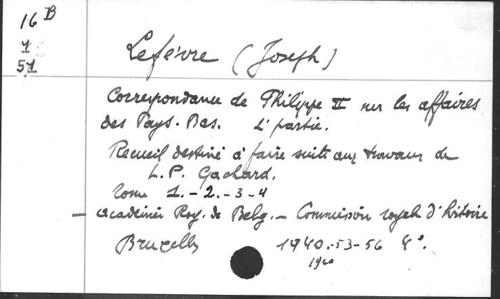 16 B
1
51
Lefèvre (Joseph)
Correspondance de Philippe II sur les affaires
des Pays-Bas. 2e partie.
Recueil destiné à faire suite aux travaux de
L.P. Gachard.
Tome 1.-2.-3-4
- Académie Roy. de Belg. - Commission royale d'histoire
Bruxelles 1940.-53-56 8°.
1960